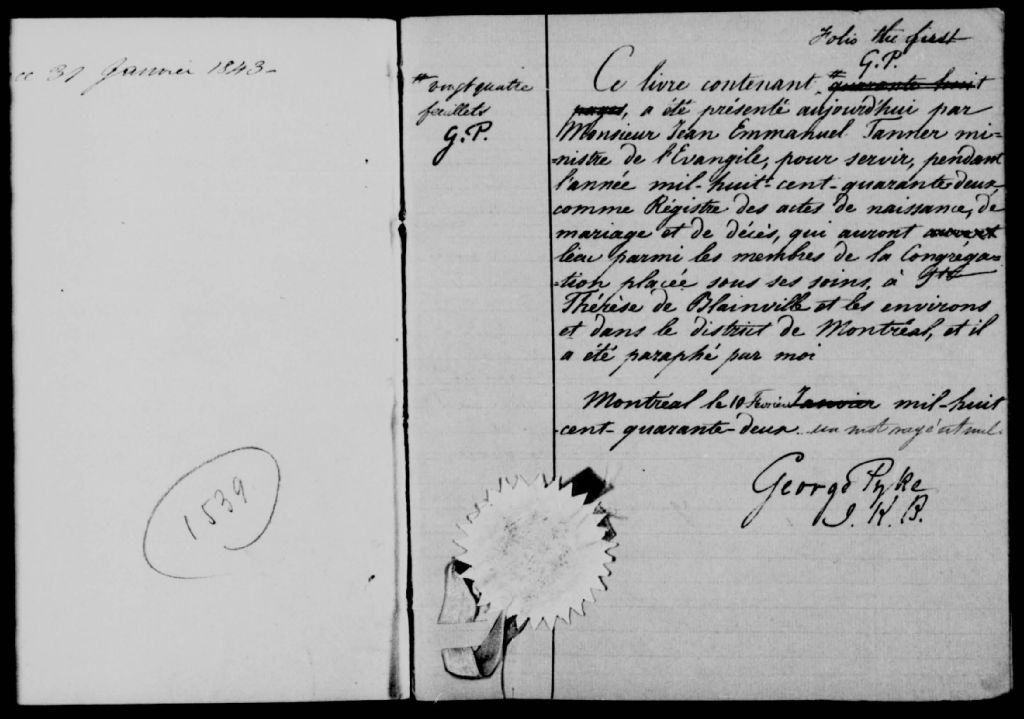 ce 31 Janvier 1843-
1539
# vingt quatre
feuillets
G.P.
Folio the first
G.P.
Ce livre contenant # quarante huit
pages, a été présenté aujourd'hui par
Monsieur Jean Emmanuel Tanner mi=
=nistre de l'Evangile, pour servir, pendant
l'année mil-huit-cent-quarante-deux,
comme Régistre des actes de naissance, de
mariage et de décès, qui auront auront
lieu parmi les membres de la Congréga-
-tion placée sous ses soins, à Ste
Thérèse de Blainville et les environs
et dans le district de Montréal, et il
a été paraphé par moi
Montréal le 10 Fevrier Janvier mil-huit
cent-quarante-deux. un mot rayé est nul.
George Pyke
J. K. B.